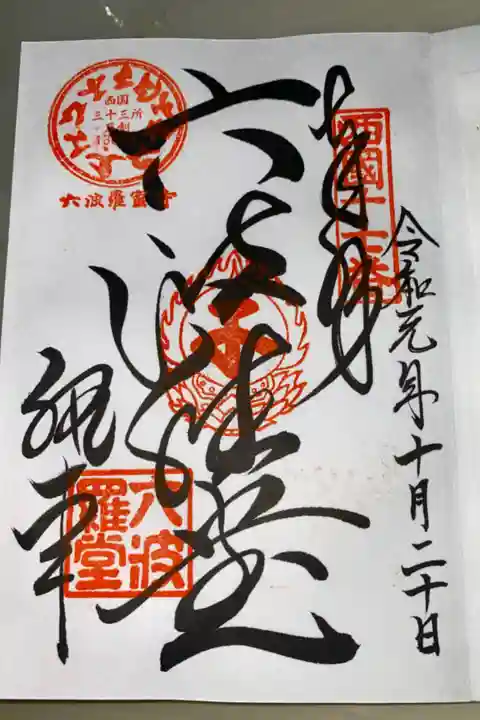 奉拝
西國十七番
令和元年十月二十日
六波羅堂
執事
六波羅堂
六波羅蜜寺
西国三十三所